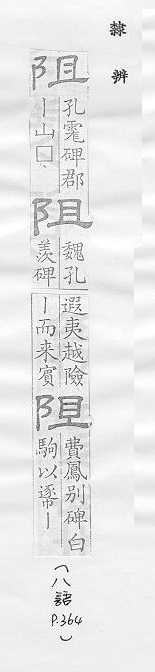 隸辨
阻
孔碑郡
丨山囗
阻
魏孔
羨碑
遐夷越險
丨而來賓
阻
費鳳別碑白
駒以丨
(八語
P.364)